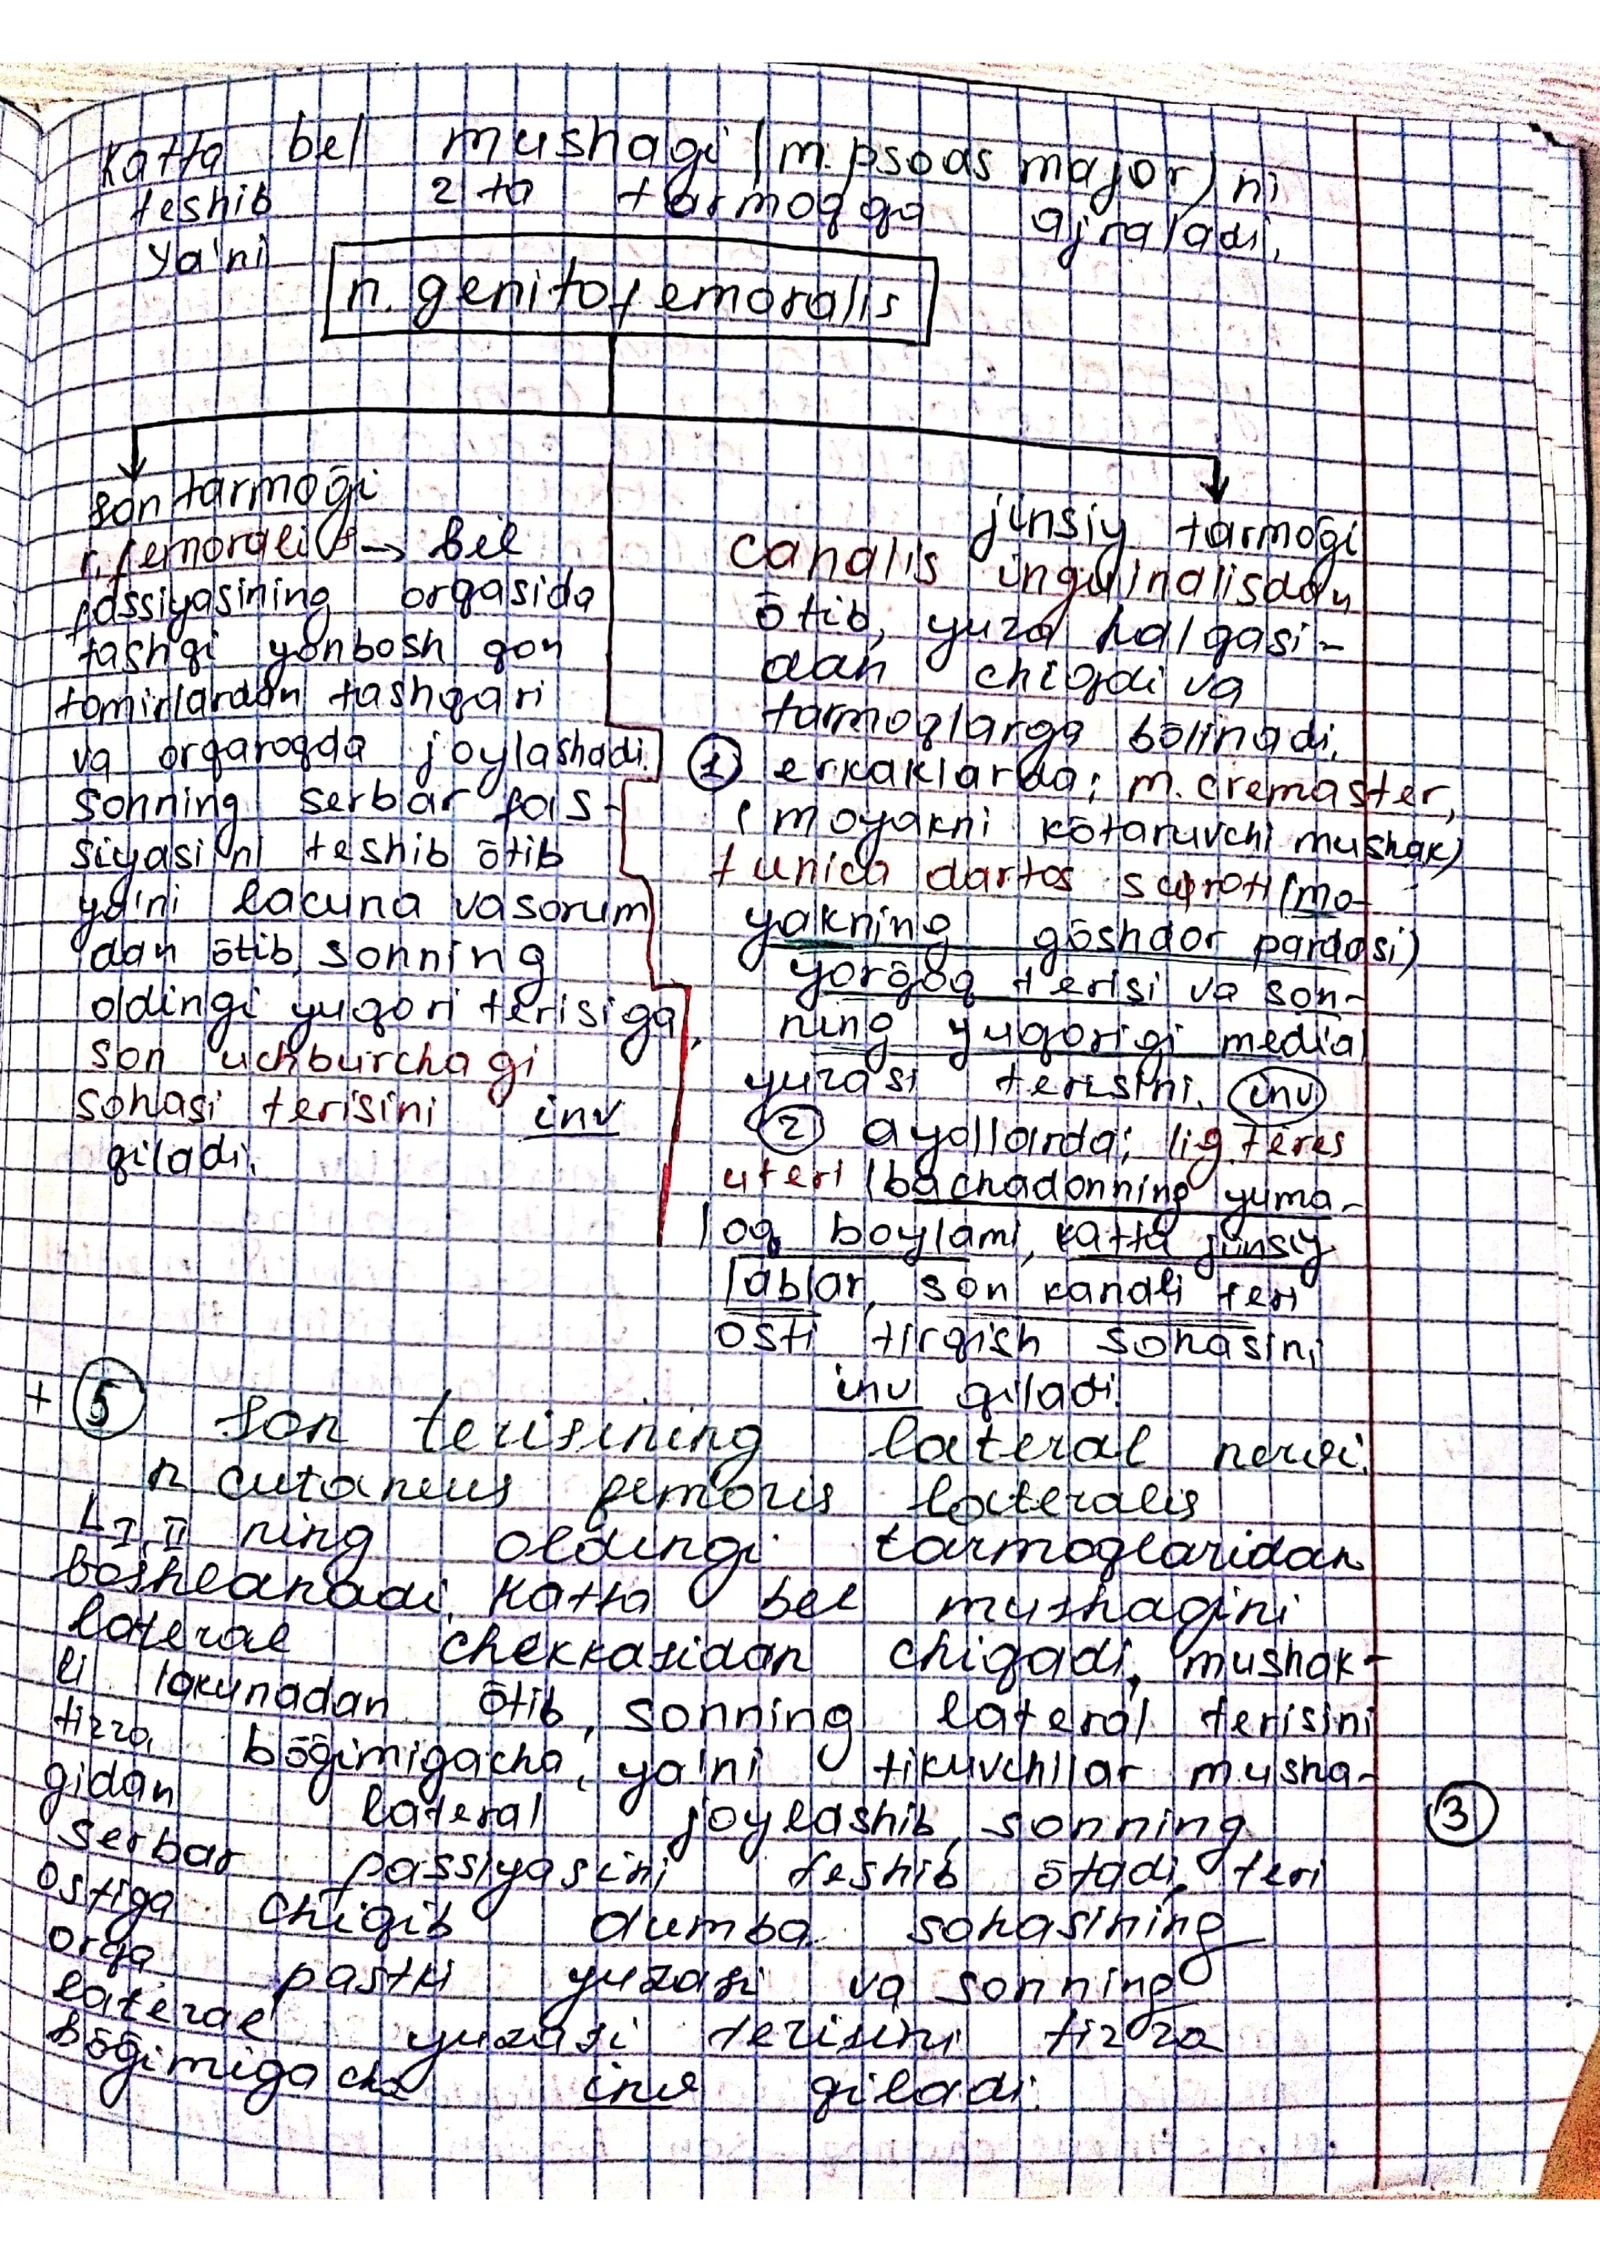 Katta bel mushagi (m.psoas major) ni
teshib 2 ta tarmoqqa ajraladi,
ya'ni
n. genitofemoralis
son tarmoği
r. femoralis → bel
fassiyasining orqasida
tashqi yonbosh qon
tomirlardan tashqari
va orqaroqda joylashadi.
sonning serbar fas-
siyasini teshib ōtib
ya'ni lacuna vasorum
dan ōtib, sonning
oldingi yuqori terisiga,
son uchburchagi
sohasi terisini inv
qiladi.
jinsiy tarmoği
canalis inguinalisdan
ōtib, yuza halqasi-
dan chiqdi va
tarmoqlarga bōlinadi.
① erkaklarda; m. cremaster,
(moyakni kōtaruvchi mushak)
tunica dartos scproti (mo-
yakning gōshdor pardasi)
yorğoq terisi va son-
ning yuqorigi medial
yuzasi terisini. inv
② ayollarda; lig. teres
uteri (bachadonning yuma-
loq boylami, katta jinsiy
lablar, son kanali teri
osti tirqish sohasini
inv qiladi.
+ ⑤ Son terisining lateral nervi.
n cutaneus femoris lateralis
L I, II ning oldingi tarmoqlaridan
boshlanadi. Katta bel mushagini
lateral chekkasidan chiqadi, mushak-
li lakunadan ōtib, sonning lateral terisini
tizza bōğimigacha, ya'ni tikuvchilar musha-
gidan lateral joylashib, sonning
③
serbar fassiyasini teshib ōtadi, teri
ostiga chiqib dumba sohasining
orqa pastki yuzasi va sonning
lateral yuzasi terisini tizza
bōğimigacha inv qiladi.